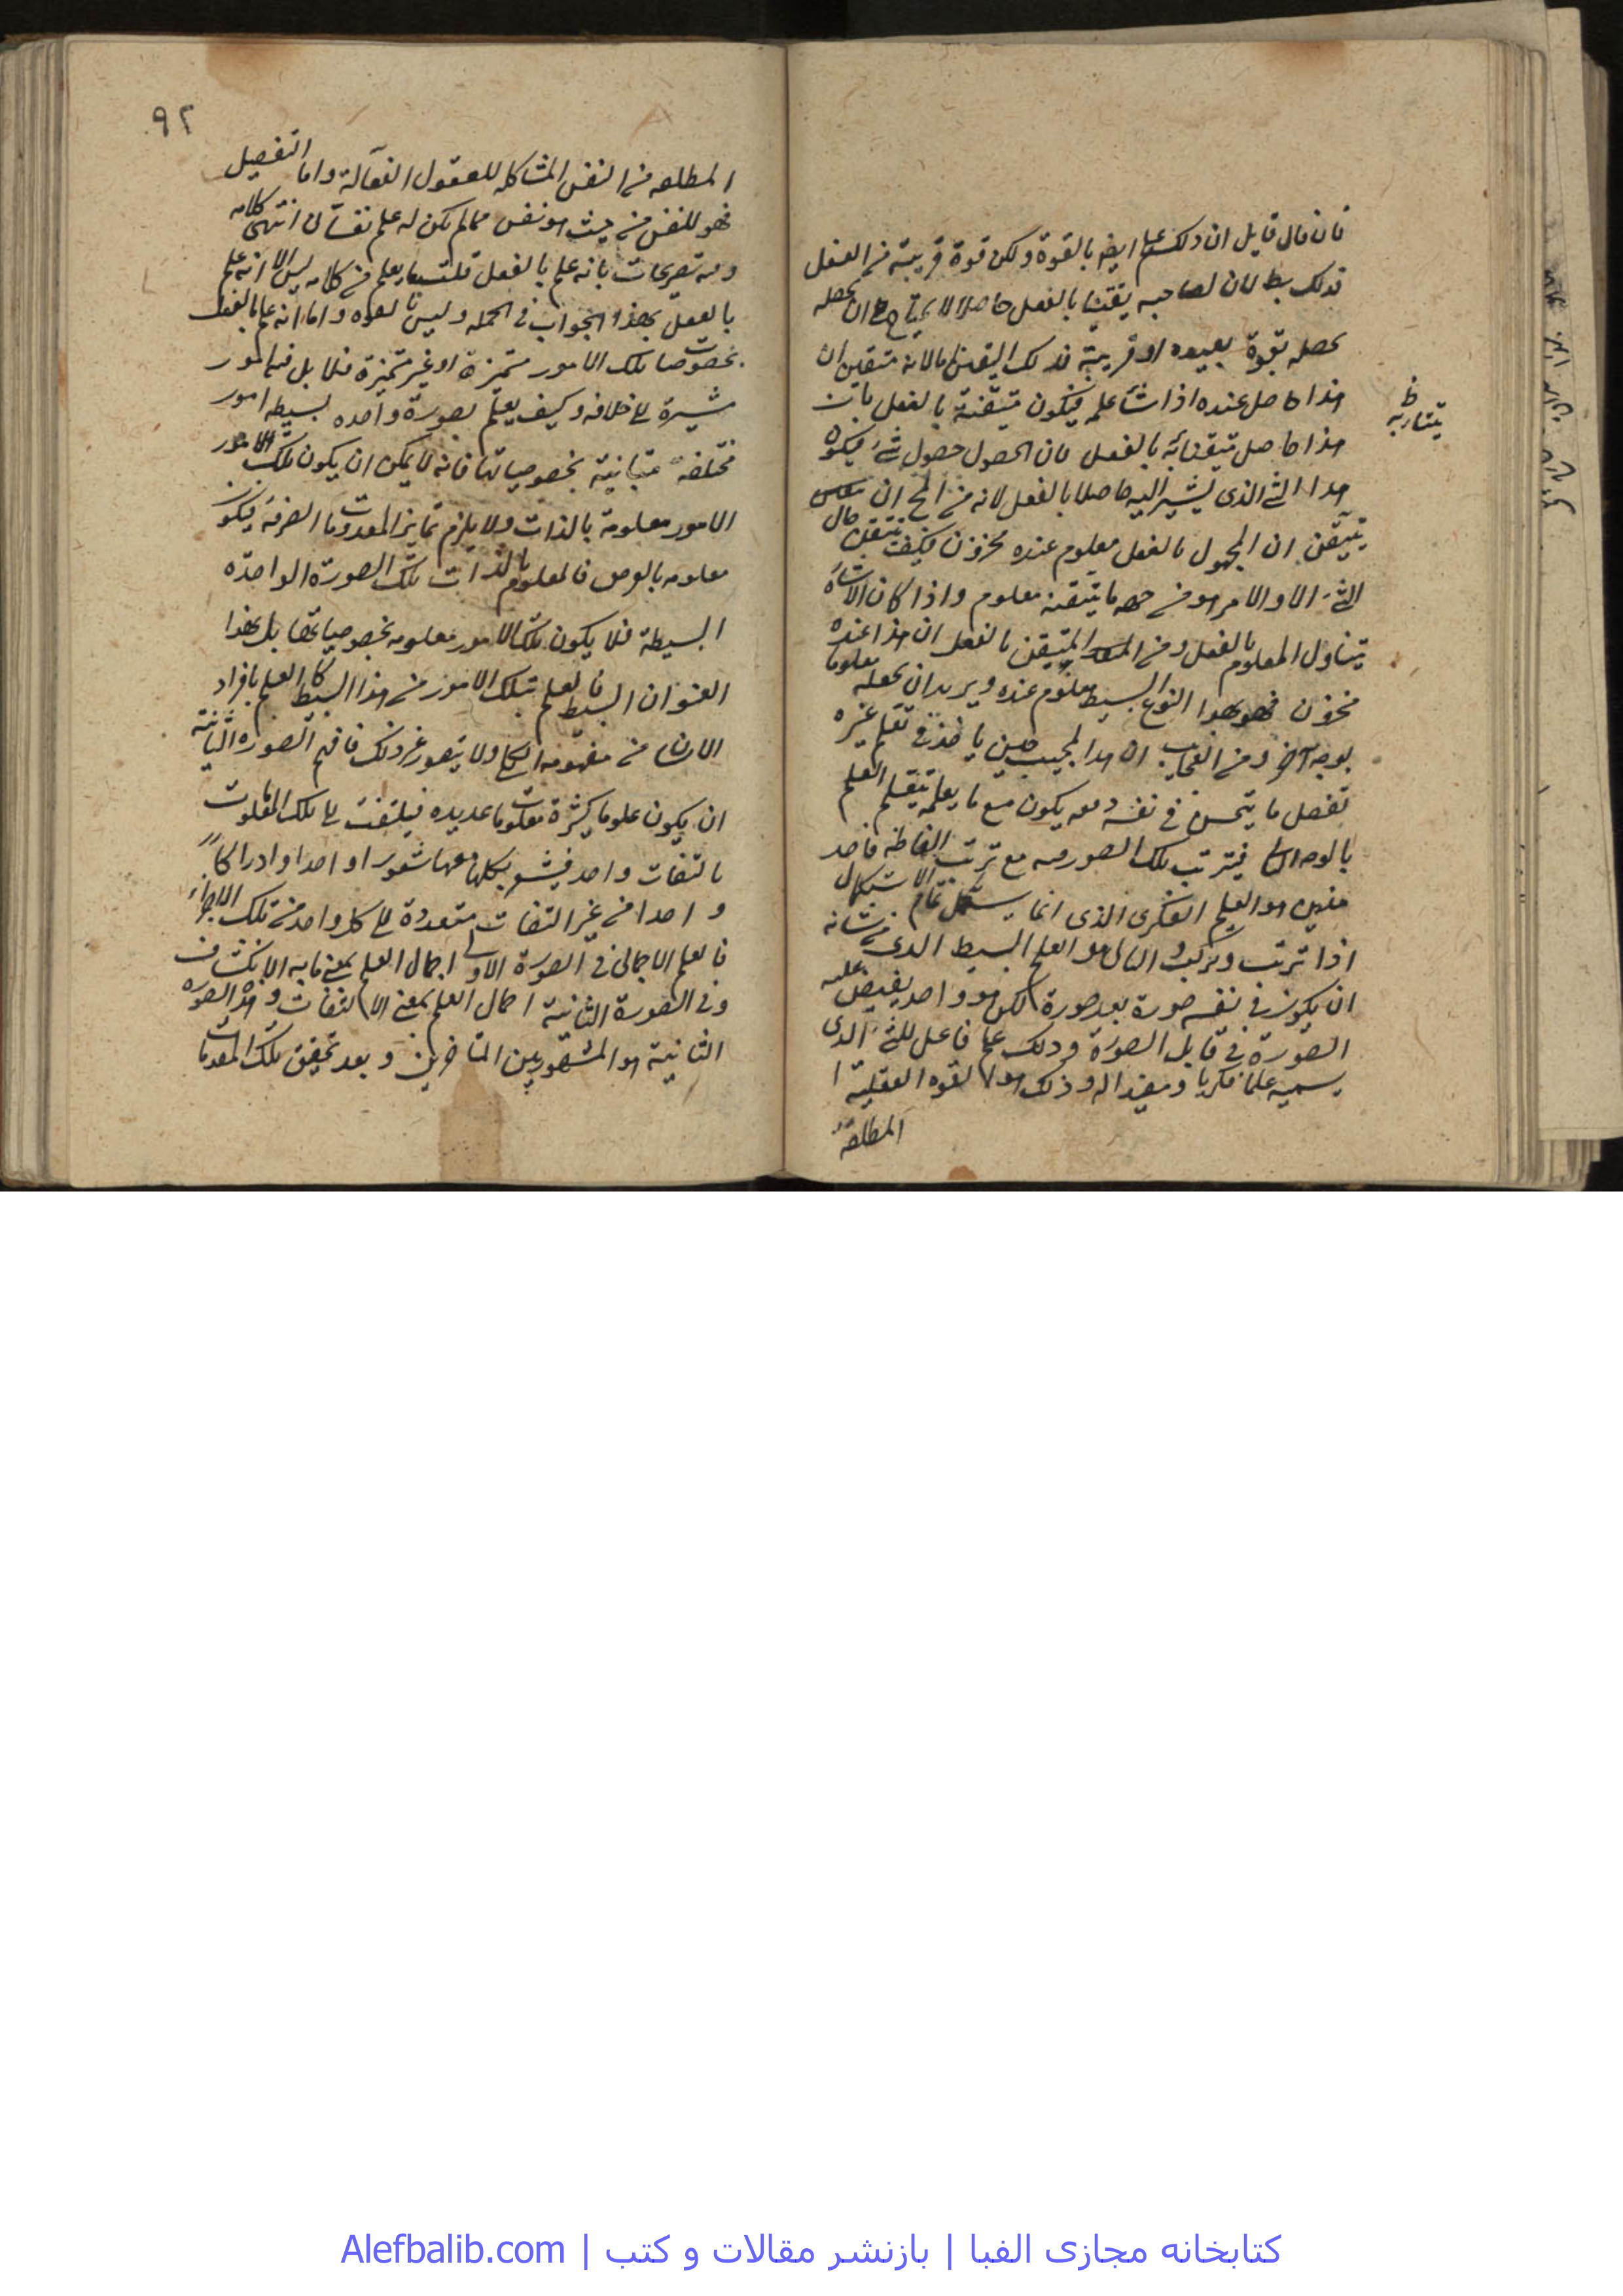 فان قال قايل ان ذلك علم ايض بالقوة ولكن قوة قريبة من الفعل
فذلك بط لان لصاحبه يقينا بالفعل حاصلا لا يحتاج ان يحصله
بقوة بعيده او قريبة فذلك اليقين لانه متيقن ان
هذا حاصل عنده اذا شاء علمه فيكون تيقنه بالفعل بان
هذا حاصل تيقنا به بالفعل فان الحصول حصول لشئ فيكون
هذا الشئ الذى يشير اليه حاصلا بالفعل لانه من المح ان
يتيقن ان المجهول بالفعل معلوم عنده مخزون فكيف يتيقن حال
الشئ الا والامر هو من جهه ما يتيقنه معلوم واذا كان الاشارة
يتناول المعلوم بالفعل ومن المتيقن بالفعل ان هذا عنده
مخزون فهو بهذا النوع البسيط معلوم عنده ويريد ان يجعله معلوما
بوجه آخر ومن العجايب ان هذا المجيب حين ياخذ فى تعلم غيره
تفصيل ما يحس فى نفسه دفعه يكون مع ما يعلمه يتعلم العلم
بالوجه الثانى فيترتب تلك الصور فيه مع ترتب الفاظه فاحد
هذين هو العلم الفكرى الذى انما يستكمل تمام الاستكمال
اذا ترتب وتركب والثانى هو العلم البسيط الذى من شانه
ان يكون فى نفسه صورة بعد صورة لكن هو واحد يفيض عليه
الصورة فى قابل الصورة وذلك علم فاعل للشئ الذى
يسميه علما فكريا ومبدا له وذلك هو القوه العقلية
المطلقة
يتقاربه
ظ
٩٢
المطلقه من النفس المشاكله للعقول الفعالة واما التفصيل
فهو للنفس من حيث هو نفس فما لم يكن له علم نفسانى انتهى كلامه
وفيه تصريحات بانه علم بالفعل قلت ما يعلم من كلامه ليس الا انه علم
بالفعل بهذا الجواب فى الجمله وليس بالقوه واما انه علم بالفعل
بخصوصيات تلك الامور متميزة او غير متميزة فلا بل فيه امور
مشيرة الى خلافه وكيف يعلم بصورة واحده بسيطه امور
مختلفة متباينة بخصوصياتها فانه لا يمكن ان يكون تلك الامور
الامور معلومة بالذات ولا يلزم تمايز المعدومات الصرفه فيكون
معلومه بالعرض فالمعلوم بالذات تلك الصورة الواحده
البسيطة فلا يكون تلك الامور معلومه بخصوصياتها بل بهذا
العنوان البسيط فالعلم بتلك الامور من هذا البسيط كالعلم بافراد
الانسان من مفهومه الكلى ولا يتصور غير ذلك فافهم الصورة الثانية
ان يكون علوما كثيرة بمعلومات عديده فيلتفت الى تلك المعلومات
بالتفات واحد فيشعر بكلها معها شعورا واحدا وادراكا
واحدا من غير التفات متعددة الى كل واحد من تلك الاجزاء
فالعلم الاجمالى فى الصورة الاولى اجمال العلم بمعنى ما به الانكشاف
وفى الصورة الثانية اجمال العلم بمعنى الالتفات وهذه الصورة
الثانية هو المشهور بين المتاخرين وبعد تحقيق تلك المقدمات
كتابخانه مجازی الفبا | بازنشر مقالات و کتب | Alefbalib.com